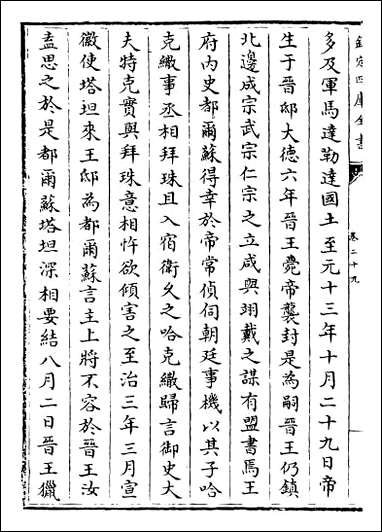 欽定四庫全書
卷二十九
多及軍馬達勒達國土至元十三年十月二十九日帝
生于晉邸大德六年晉王薨帝襲封是為嗣晉王仍鎮
北邊成宗武宗仁宗之立咸與翊戴之謀有盟書焉王
府內史都爾蘇得幸於帝常偵伺朝廷事機以其子哈
克繖事丞相拜珠且入宿衛久之哈克繖歸言御史大
夫特克實與拜珠意相忤欲傾害之至治三年三月宣
徽使塔坦來王邸為都爾蘇言主上將不容於晉王汝
盍思之於是都爾蘇塔坦深相要結八月二日晉王獵